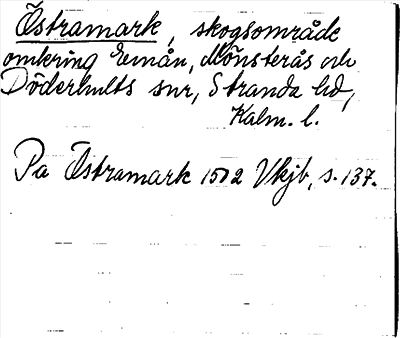 Östramark, skogsområde
omkring Emån, Mönsterås och
Döderhults snr, Stranda hd,
Kalm. l.
Pa Östramark 1502 Vkjb, s. 137.